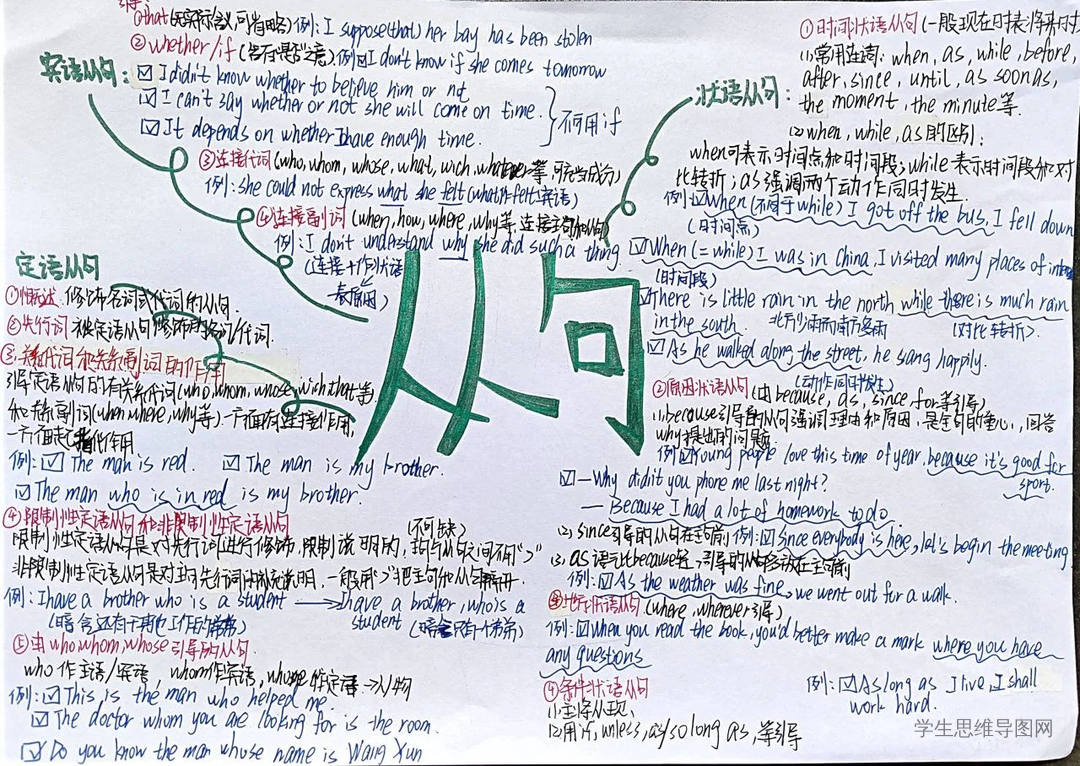 宾语从句:
①that(无实际含义,可省略)例: I suppose(that) her bay has been stolen
②whether/if(含有"是否"之意).例:☑I don't know if she comes tomorrow
☑ I didn't know whether to believe him or not
☑ I can't say whether or not she will come on time.
☑ It depends on whether I have enough time.
}不可用if
③连接代词(who, whom, whose, what, wich, whatever等,可充当成分)
例: she could not express what she felt (what作felt宾语)
④连接副词(when, how, where, why等,连接主句和从句)
例: I don't understand why she did such a thing
(连接+作状语
表原因)
从句
定语从句
①概述.修饰名词或代词的从句.
②先行词 被定语从句修饰的名词代词.
③.关系代词和关系副词的作用
引导定语从句的有关系代词(who, whom, whose, wich, that等)
和关系副词(when, where, why等).一方面有连接作用,
一方面起指代作用
例:☑ The man is red. ☑ The man is my brother.
☑ The man who is in red is my brother.
④限制性定语从句和非限制性定语从句
(不可缺)
限制性定语从句是对先行词进行修饰,限制说明的,主句与从句之间不用","
非限制性定语从句是对主句先行词的补充说明,一般用","把主句和从句隔开.
例: I have a brother who is a student → I have a brother, who is a
student
(暗含还有干其他工作的弟弟)
(暗含只有一个弟弟)
⑤由who, whom, whose引导的从句.
who作主语/宾语, whom作宾语, whose作定语→人/物
例:☑ This is the man who helped me.
☑ The doctor whom you are looking for is the room.
☑ Do you know the man whose name is Wang Xun
状语从句:
①时间状语从句(一般现在时表将来时
(1)常用连词: when, as, while, before,
after, since, until, as soon as,
the moment, the minute等.
(2) when, while, as的区别:
when可表示时间点和时间段; while表示时间段和对
比转折; as强调两个动作同时发生.
例:☑When (不用于while) I got off the bus, I fell down
(时间点)
☑When (= while) I was in China, I visited many places of
(时间段)
☑there is little rain in the north while there is much rain
in the south. 北方少雨而南方多雨 (对比转折)
☑ As he walked along the street, he sang happily.
(动作同时发生)
②原因状语从句(由because, as, since, for等引导)
(1)because引导的从句强调理由和原因,是全句的重心,回答
why提出的问题
例☑Young people love this time of year, because it's good for
sport.
☑ —Why didi't you phone me last night?
— Because I had a lot of homework to do.
(2). since引导的从句在主句前 例:☑ Since everybody is here, let's begin the meeting.
(3). as语气比because轻,引导的从句多放在主句前
例:☑ As the weather was fine, we went out for a walk.
③地点状语从句(where, wherever引导)
例:☑When you read the book, you'd better make a mark where you have
any questions
④条件状语从句
(1)主将从现,
(2)用if, unless, as/so long as, 等引导
例:☑As long as I live, I shall
work hard.
学生思维导图网